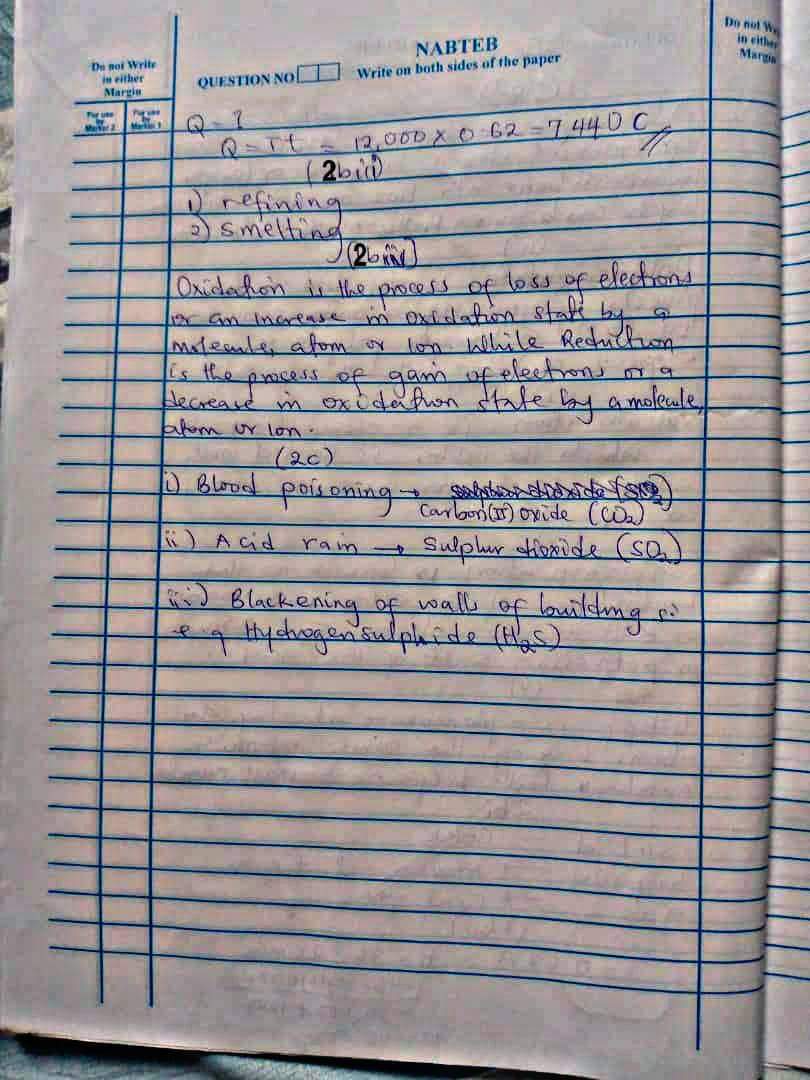 Do not Write
in either
Margin
For use
by
Marker 2
For use
by
Marker 1
NABTEB
QUESTION NO
Write on both sides of the paper
Do not W
in either
Margin
Q = I
Q = It = 12,000 x 0.62 = 7,440 C
(2bii)
1) refining
2) smelting
(2biii)
Oxidation is the process of loss of electrons
or an increase in oxidation state by a
molecule, atom or ion. While Reduction
is the process of gain of electrons or a
decrease in oxidation state by a molecule,
atom or ion.
(2c)
i) Blood poisoning →
Carbon(II) oxide (CO2)
ii) Acid rain → Sulphur dioxide (SO2)
iii) Blackening of walls of building
e.g Hydrogen sulphide (H2S)